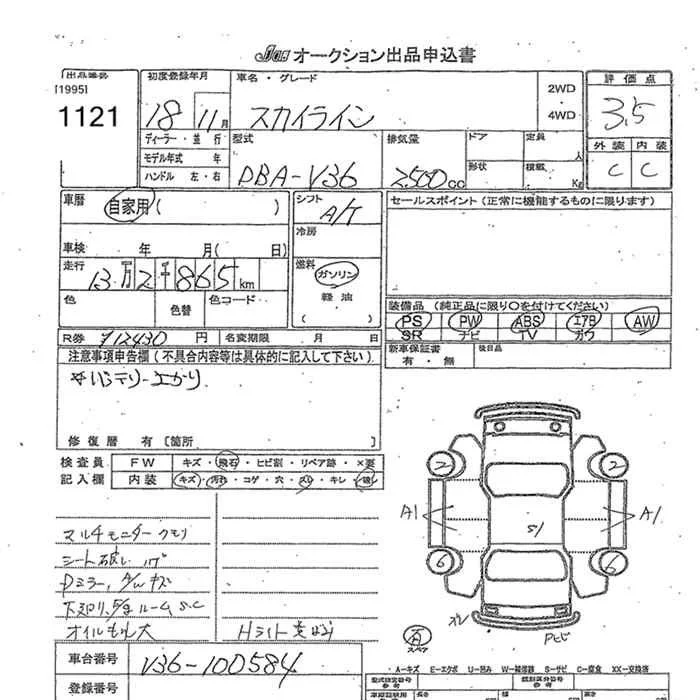 JAA オークション出品申込書
出品番号 初度登録年月 車名・グレード 2WD・4WD 評価点
[1995]
1121 18 11月 スカイライン 3.5
ディーラー・並行 型式 排気量 ドア 定員 人 外装 内装
モデル年式 年 形状 積載 Kg
ハンドル 左・右 DBA-V36 2500cc C C
車歴 自家用( ) シフト A/T セールスポイント(正常に機能するものに限ります)
冷房
車検 年 月( 日)
走行 13万2千865km 燃料 ガソリン
軽油
( )
色 色替 色コード 装備品 (純正品に限り○を付けてください)
PS PW ABS エアB AW
SR ナビ TV カワ
R券 ¥12430円 名変期限 月 日
新車保証書 有・無 後日品
注意事項申告欄(不具合内容等は具体的に記入して下さい)
*バッテリー上がり
修復歴 有〔箇所 〕
検査員 FW キズ・飛石・ヒビ割・リペア跡・×要
記入欄 内装 キズ・汚れ・コゲ・穴・スレ・キレ・破レ
2 2
A1 S1 A1
6 6
マルチモニタークモリ
シート破レ
Dミラー、A/Wキズ
S.C
オイルもれ大 Hライト
有 スペア
スレ
Pヒビ
車台番号 V36-100584
登録番号
A…キズ E…エクボ U…凹み W…補修跡 S…サビ C…腐食 XX…交換済
型式指定番号 参考 類別区分番号 参考
長さ 幅 高さ